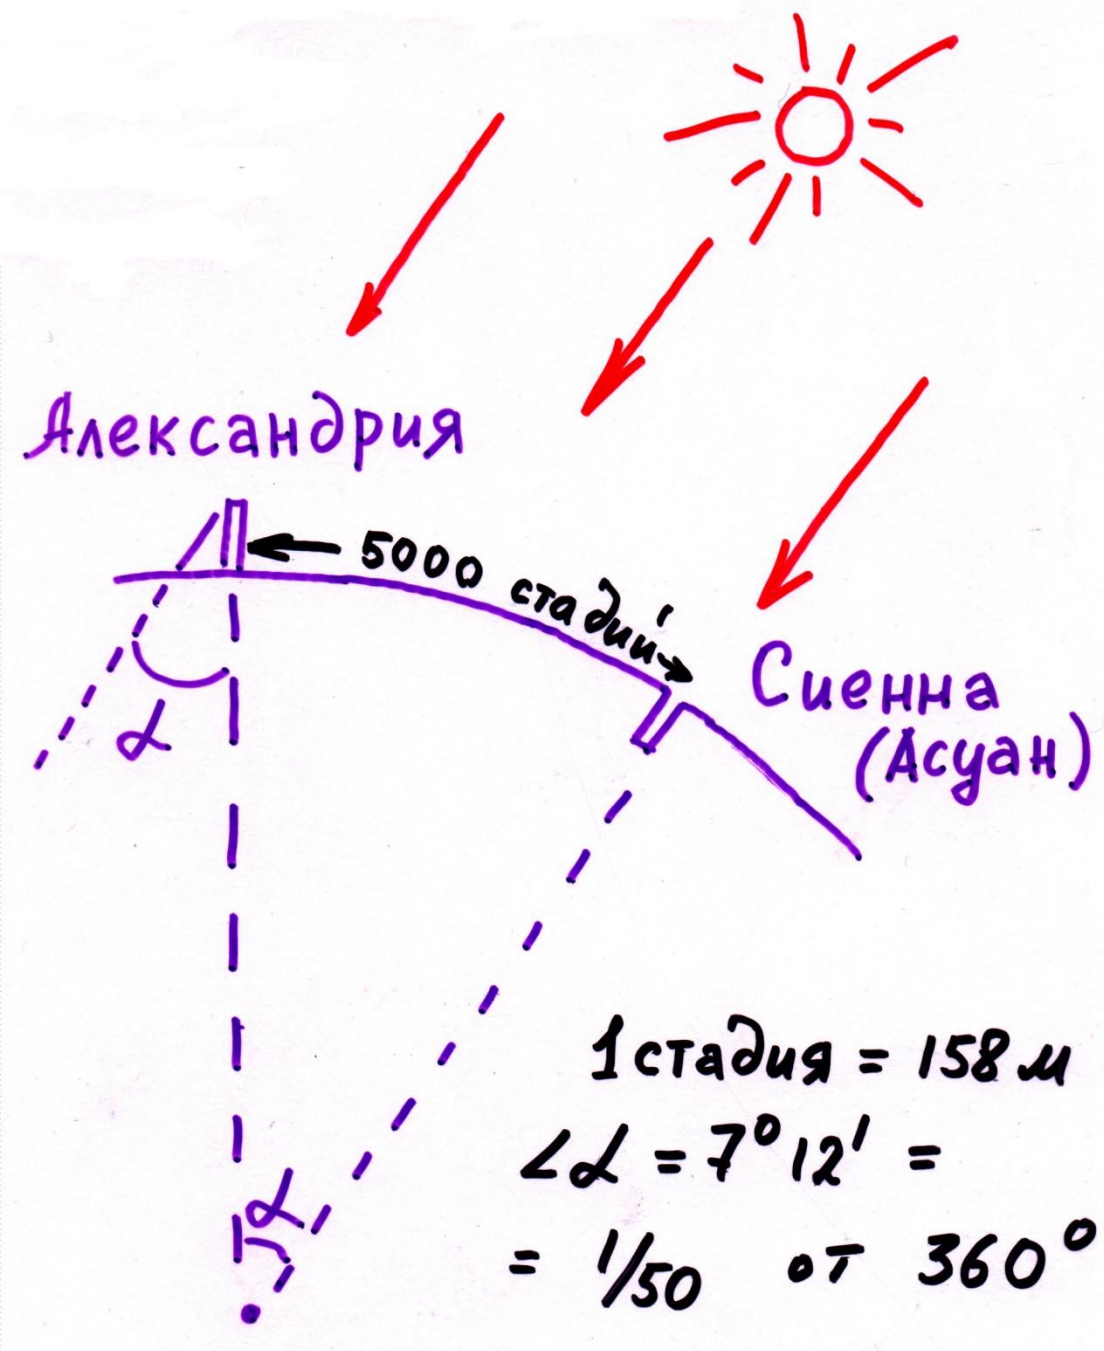 Александрия
← 5000 стадий →
Сиенна
(Асуан)
α
α
1 стадия = 158 м
∠α = 7° 12' =
= 1/50 от 360°